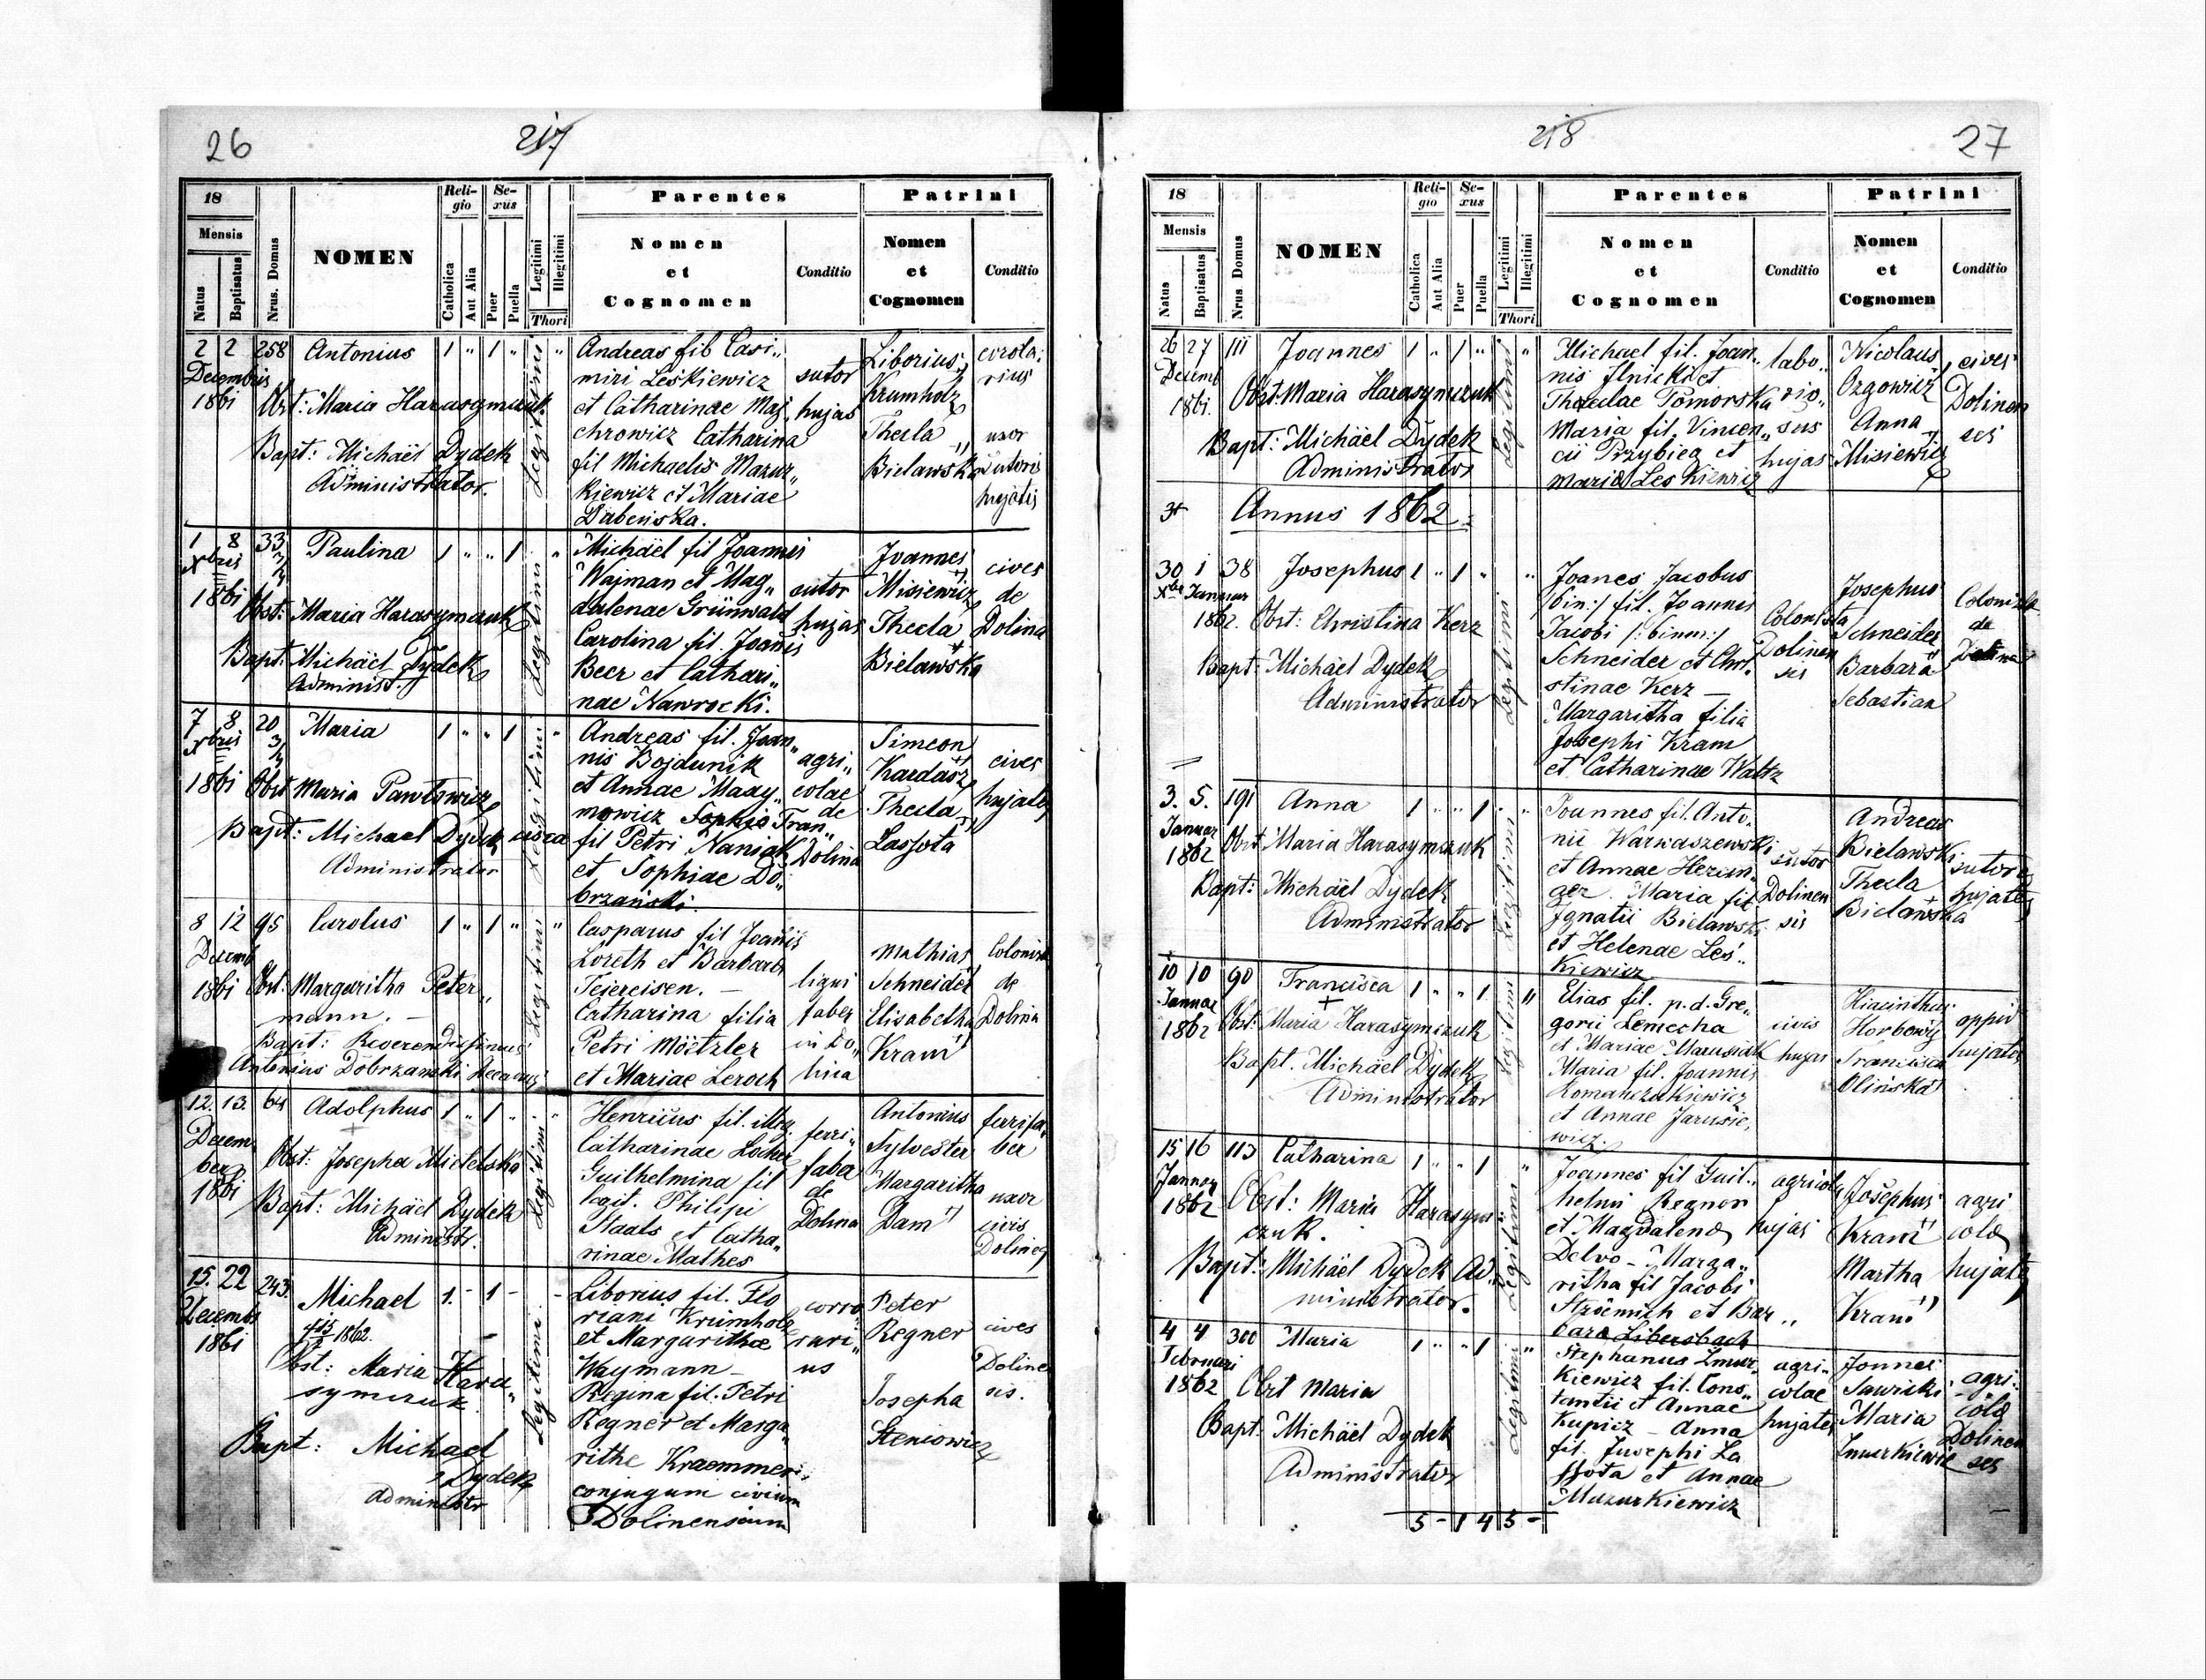 26
217
18
Mensis
Natus
Baptisatus
Nrus. Domus
NOMEN
Reli-
gio
Catholica
Aut Alia
Se-
xus
Puer
Puella
Legitimi
Illegitimi
Thori
Parentes
Nomen
et
Cognomen
Conditio
Patrini
Nomen
et
Cognomen
Conditio
2 2 258 Antonius 1 " 1 " "
Decembris
1861
Obst: Maria Harasymczuk
Bapt: Michaël Dydek
Administrator.
Legitimi
Andreas fil Casi„
miri Leskiewicz
et Catharinae Maj„
chrowicz Catharina
fil Michaelis Mazur„
kiewicz et Mariae
Dabenska.
sutor
hujas
Liborius
Krumholz
Thecla
Bielawska
uxor
sutoris
hujatis
1 8 33 Paulina 1 " " 1 "
Xbris
1861
Obst: Maria Harasymczuk
Bapt: Michaël Dydek
Administ.
Legitimi
Michaël fil Joannis
Wajman et Mag„
dalenae Grünwald
Carolina fil. Joañis
Beer et Cathari„
nae Nawrocki.
sutor
hujas
Joannes
Misiewicz
Thecla
Bielawska
cives
de
Dolina
7 8 20 Maria 1 " " 1 "
Xbris
1861
Obst Maria Pawlowicz
Bapt: Michael Dydek
Administrator
Legitimi
Andreas fil. Joan„
nis Bojdunik
et Annae
mowicz Sophia Fran„
cisca fil Petri Naniak
et Sophiae Do„
brzański.
agri„
colae
de
Dolina
Simeon
Kardasz
Thecla
Lassota
cives
hujates
8 12 95 Carolus 1 " 1 " "
Decemb
1861
Obst: Margaritha Peter„
mann. —
Bapt: Reverendissimus
Antonius Dobrzanski Decanus
Legitimi
Casparus fil Joañis
Loreth et Barbara
Catharina filia
Petri Moitzler
et Mariae Leroch
ligni
faber
in Do„
lina
Mathias
Schneider
Elisabetha
Kram
Colonist
de
Dolina
12. 13. 64 Adolphus 1 " 1 " "
Decem
ber
1861
Obst: Josepha Mielelska
Bapt: Michaël Dydek
Administr.
Legitimi
Henricus fil. illeg.
Catharinae Locher
Guilhelmina fil
legit. Philipi
Staals et Catha„
rinae Mathes
ferri„
faber
de
Dolina
Antonius
Sylvester
Margaritha
Dam
ferrifa„
ber
uxor
civis
15. 22 243. Michael 1. - 1 - -
Decembr
1861
1862.
Obst: Maria Hara„
symczuk
Bapt: Michael
Dydek
Administr
Legitimi
Liborius fil. Flo
riani Krumholz
et Margarithae
Waymann —
Regina fil. Petri
Regner et Marga„
rithe Kraemmer,
conjugum civium
Dolinensium
Peter
Regner
Josepha
Steniowicz
cives
Doline
sis.
218
27
18
Mensis
Natus
Baptisatus
Nrus Domus
NOMEN
Reli-
gio
Catholica
Aut Alia
Se-
xus
Puer
Puella
Legitimi
Illegitimi
Thori
Parentes
Nomen
et
Cognomen
Conditio
Patrini
Nomen
et
Cognomen
Conditio
26 27 111 Joannes 1 " 1 " "
Decemb
1861.
Obst: Maria Harasymczuk
Bapt: Michaël Dydek
Administrator
Legitimi
Michael fil. Joan„
nis Ilnicki et
Theclae Pomorska
Maria fil. Vincen„
cii Przybieg et
Mariae Leskiewicz
labo„
rio„
sus
hujas
Nicolaus
Ozgowicz
Anna
Misiewicz
cives
Dolinen
ses
Annus 1862.
30 1 38 Josephus 1 " 1 " "
Xbr Januar
1862.
Obst: Christina Kerz
Bapt: Michäel Dydek
Administrator
Legitimi
Joanes Jacobus
/bin:/ fil. Joannis
Jacobi /:binm:/
Schneider et Chri„
stinae Kerz —
Margaritha filia
Josephi Kram
et Catharinae Waltz
Colonista
Dolinen
sis
Josephus
Schneider
Barbara
Sebastian
Colonista
de
Dolina
3. 5. 191 Anna 1 " " 1 "
Januar
1862
Obst Maria Harasymczuk
Bapt: Michäel Dydek
Administrator
Legitimi
Joannes fil. Anto„
nii Warwaszewski
et Annae Herin„
ger. Maria fil
Ignatii Bielawski
et Helenae Les„
kiewicz
sutor
Dolinen
sis
Andreas
Bielawski
Thecla
Bielawska
sutores
hujates
10 10 90 Francisca 1 " " 1 "
Januar
1862
Obst: Maria Harasymczuk
Bapt. Michäel Dydek
Administrator
Legitimi
Elias fil. p.d. Gre„
gorii Lemecha
et Mariae Marusiak
Maria fil. Joannis
Romanczukiewicz
et Annae Jarusie„
wicz.
civis
hujas
Hiacinthus
Horbowy
Francisca
Olińska
oppid
hujates
15 16 113 Catharina 1 " " 1 "
Januar
1862
Obst: Maria Harasym„
czuk.
Bapt: Michäel Dydek Ad„
ministrator.
Legitimi
Joannes fil Guil„
helmi Regner
et Magdalena
Delvo — Marga„
ritha fil Jacobi
Stroemich et Bar„
bara Libersbach
agricola
hujas
Josephus
Kram
Martha
Kram
agri
colae
hujates
4 4 300 Maria 1 " " 1 "
Februari
1862
Obst Maria
Bapt: Michäel Dydek
Administrator
Legitimi
Stephanus Zmur„
kiewicz fil. Cons„
tantii et Annae
Kupicz — Anna
fil. Josephi La
ssota et Annae
Mazurkiewicz
agri„
colae
hujates
Joannes
Sawicki
Maria
agri„
colae
Dolinen
ses
5 - 1 4 5 -